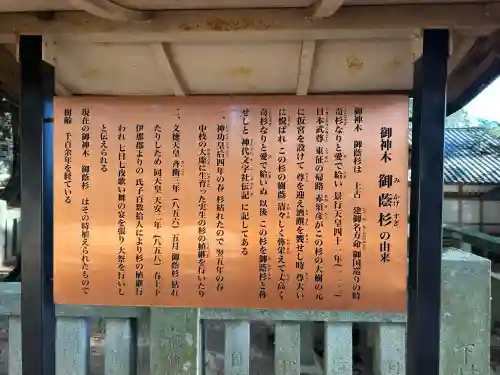 御神木 御蔭杉の由来
みかげすぎ
御神木 御蔭杉は 上古 建御名方命 御国巡りの時
奇杉なりと愛で給い 景行天皇四十一年(一一一)
日本武尊 東征の帰路 赤須彦がこの杉の大樹の元
に仮宮を設けて 尊を迎え酒饌を饗せし時 尊大い
に悦ばれ この杉の樹蔭 清々しく弥栄えて大高く
奇杉なりと愛で給いぬ 以後 この杉を御蔭杉と称
せしと 神代文字社伝記 に記してある
一、神功皇后四年の春 杉枯れたので 翌五年の春
中枝の大虚に生育った実生の杉の植継を行いたり
二、文徳天皇 斉衡三年(八五六)五月 御蔭杉 枯れ
たりしため 同天皇 天安二年(八五八)春 上下
伊那郡よりの 氏子百数拾人により杉の植継行
われ 七日七夜歌い舞の宴を張り大祭を行いし
と伝えられる
現在の御神木 御蔭杉 はその時植えられたもので
樹齢 千百余年を経ている